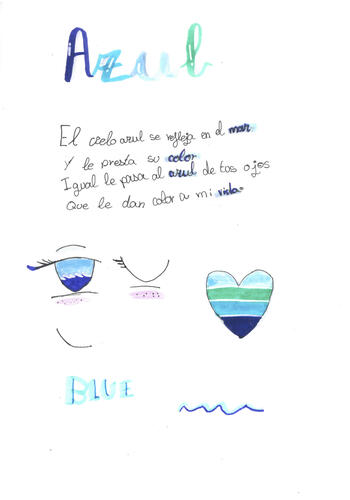 Azul
El cielo azul se refleja en el mar
Y le presta su color
Igual le pasa al azul de tos ojos
Que le dan color a mi vida
BLUE